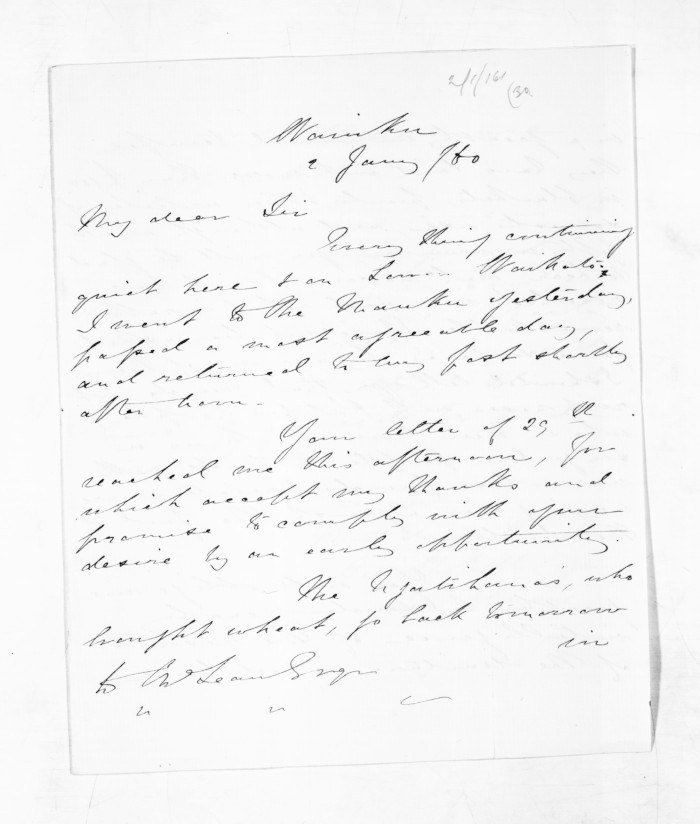 Waiuku
2 Jany /60
My dear Sir
Every thing continuing
quiet here & on Lower Waikato,
I went to the Mauku yesterday,
passed a most agreeable day,
and returned to my post shortly
after
Your letter of 29th
reached me this afternoon, for
which accept my thanks and
promise to comply with your
desire by an early opportunity.
The Ngatihauas, who
brought wheat, go back tomorrow
in
to McLean Esqr
" "